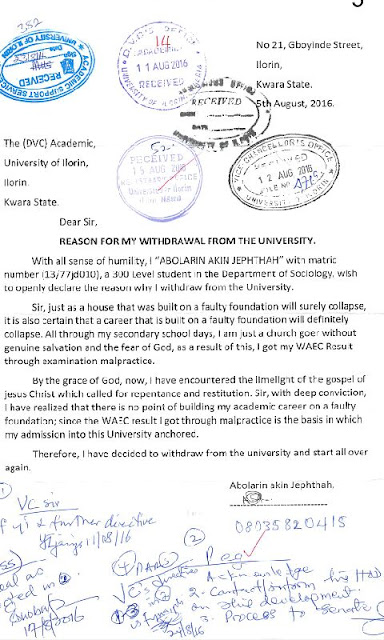 352
No 21, Gboyinde Street,
Ilorin,
Kwara State.
5th August, 2016.
14
11 AUG 2016
RECEIVED
RECEIVED
52
RECEIVED
15 AUG 2016
VICE CHANCELLOR'S OFFICE
RECEIVED
12 AUG 2016
FILE NO
UNIVERSITY OF ILORIN
ACADEMIC SUPPORT SERVICES
RECEIVED
The (DVC) Academic,
University of Ilorin,
Ilorin.
Kwara State.
Dear Sir,
REASON FOR MY WITHDRAWAL FROM THE UNIVERSITY.
With all sense of humility, I "ABOLARIN AKIN JEPHTHAH" with matric
number (13/77jd010), a 300 Level student in the Department of Sociology, wish
to openly declare the reason why I withdraw from the University.
Sir, just as a house that was built on a faulty foundation will surely collapse,
it is also certain that a career that is built on a faulty foundation will definitely
collapse. All through my secondary school days, I am just a church goer without
genuine salvation and the fear of God, as a result of this, I got my WAEC Result
through examination malpractice.
By the grace of God, now, I have encountered the limelight of the gospel of
jesus Christ which called for repentance and restitution. Sir, with deep conviction,
I have realized that there is no point of building my academic career on a faulty
foundation; since the WAEC result I got through malpractice is the basis in which
my admission into this University anchored.
Therefore, I have decided to withdraw from the university and start all over
again.
Abolarin akin Jephthah.
08035820415
VC sir
& further directive
11/08/16
2
Reg
1. Acknowledge
2. Contact/inform his HOD
on this development.
3. Process to Senate